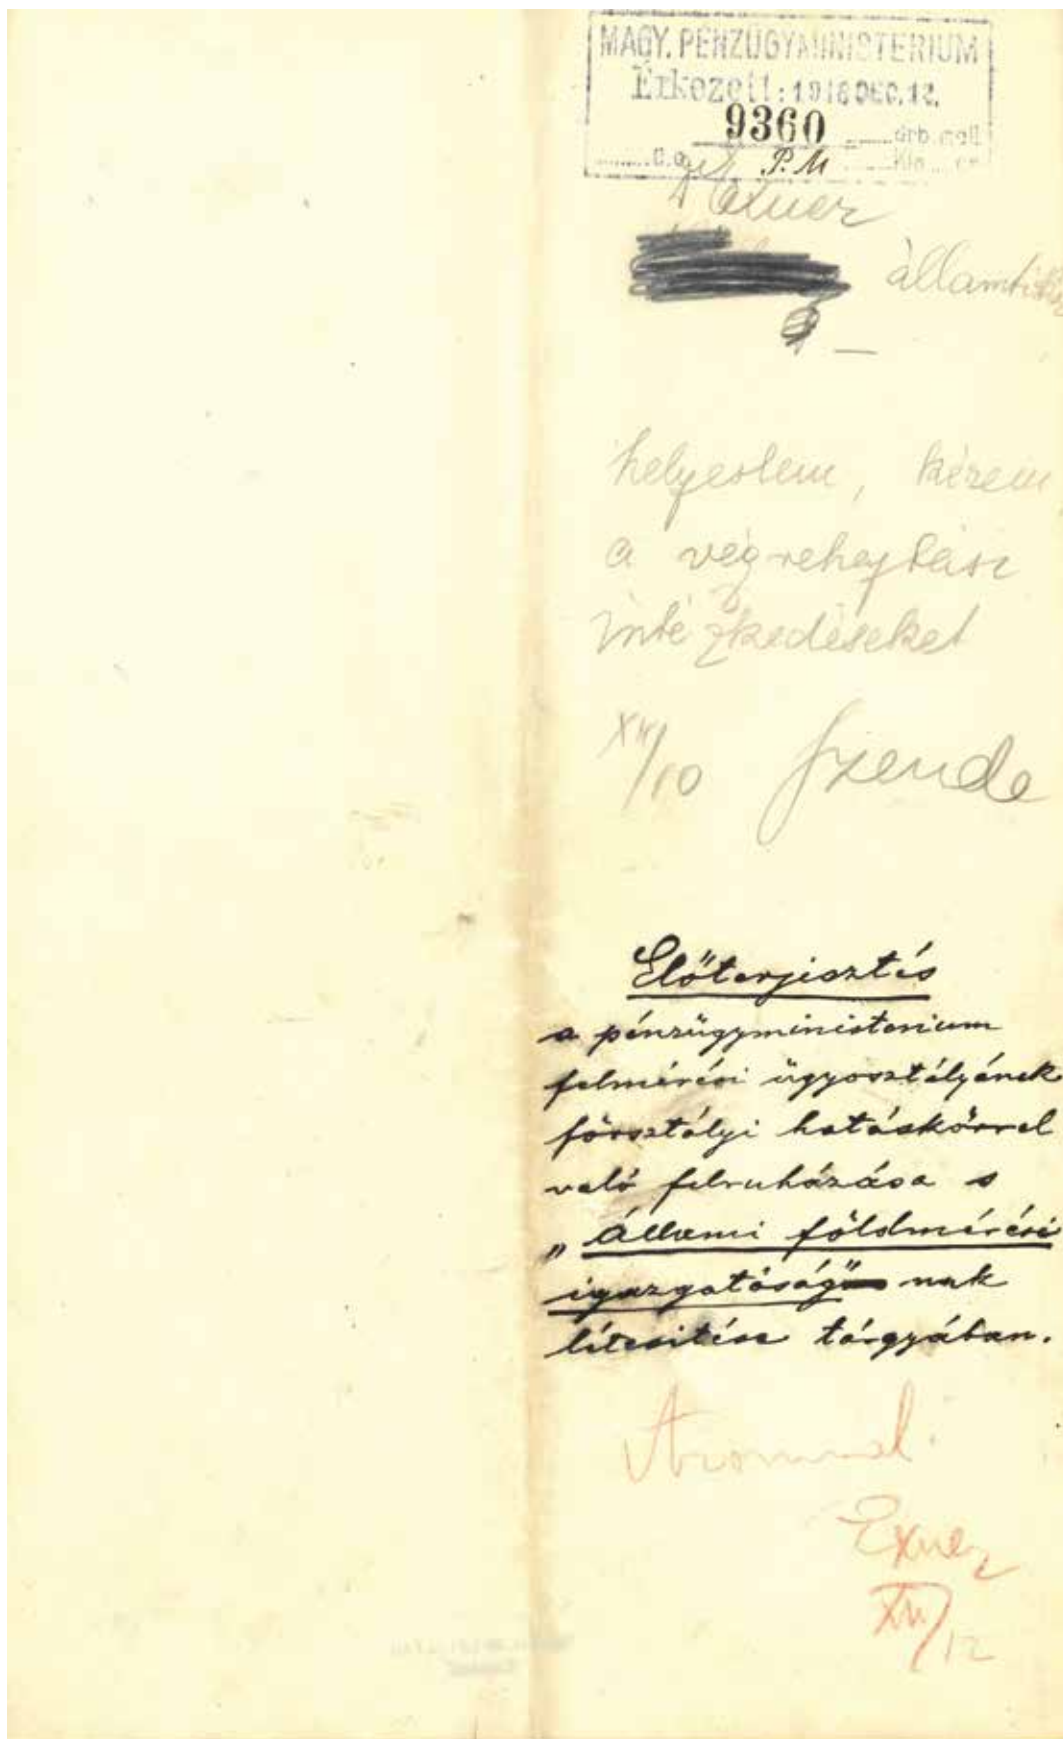 MAGY. PÉNZÜGYMINISTERIUM
Érkezett: 1918 DEC. 12.
9360 drb. mell
P. M
Exner
államtitkár
helyeslem, kérem
a végrehajtási
intézkedéseket
XII/10 Szende
Előterjesztés
a pénzügyministerium
felmérési ügyosztályának
főosztályi hatáskörrel
való felruházása s
"Állami földmérési
igazgatóság" nak
létesitése tárgyában.
Azonnal
Exner
XII/12